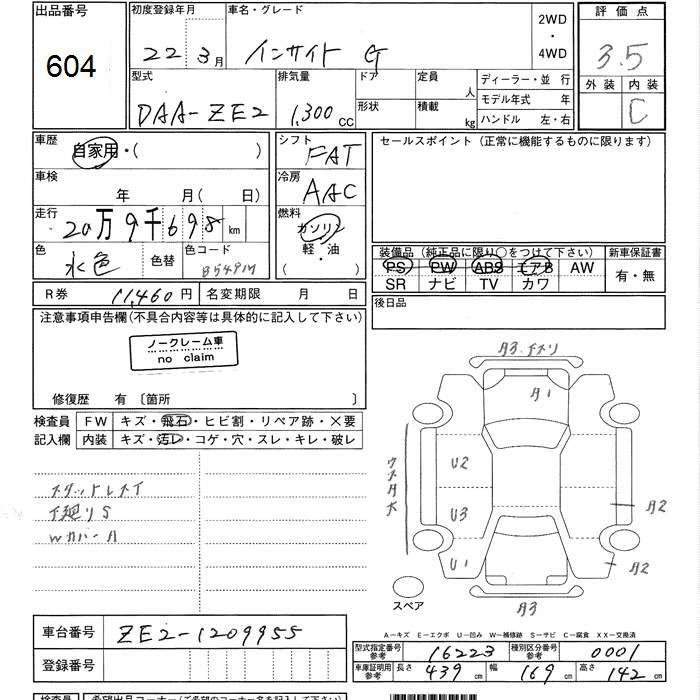 出品番号 604
初度登録年月 22 3月
車名・グレード インサイト G
2WD ・ 4WD
評価点 3.5
外装 内装 C
型式 DAA-ZE2
排気量 1,300 CC
ドア 形状
定員 人
積載 kg
ディーラー・並 行
モデル年式 年
ハンドル 左・右
車歴 自家用・( )
シフト FAT
セールスポイント (正常に機能するものに限ります)
車検 年 月(日)
冷房 AAC
走行 20万9千698km
燃料 ガソリン 軽・油 ( )
色 水色 色替 色コード B549M
装備品 (純正品に限り○をつけて下さい)
新車保証書 有・無
PS PW ABS エアB AW
SR ナビ TV カワ
R券 11,460円 名変期限 月 日
後日品
注意事項申告欄(不具合内容等は具体的に記入して下さい)
ノークレーム車
no claim
修復歴 有 〔箇所 〕
検査員 記入欄
FW キズ・飛石・ヒビ割・リペア跡・×要
内装 キズ・汚レ・コゲ・穴・スレ・キレ・破レ
スタットレスイ
下廻りS
Wカバー A
A3.チヌリ
A1
U2
U3
U1
A2
A2
A3
スペア
A-キズ E-エクボ U-凹み W-補修跡 S-サビ C-腐食 XX-交換済
車台番号 ZE2-1209955
登録番号
型式指定番号 参考 16223
種別区分番号 参考 0001
車庫証明用 参考 長さ 439 cm 幅 169 cm 高さ 142 cm
検査員 希望出品コーナー(ご希望のコーナー名を記入して下さい)